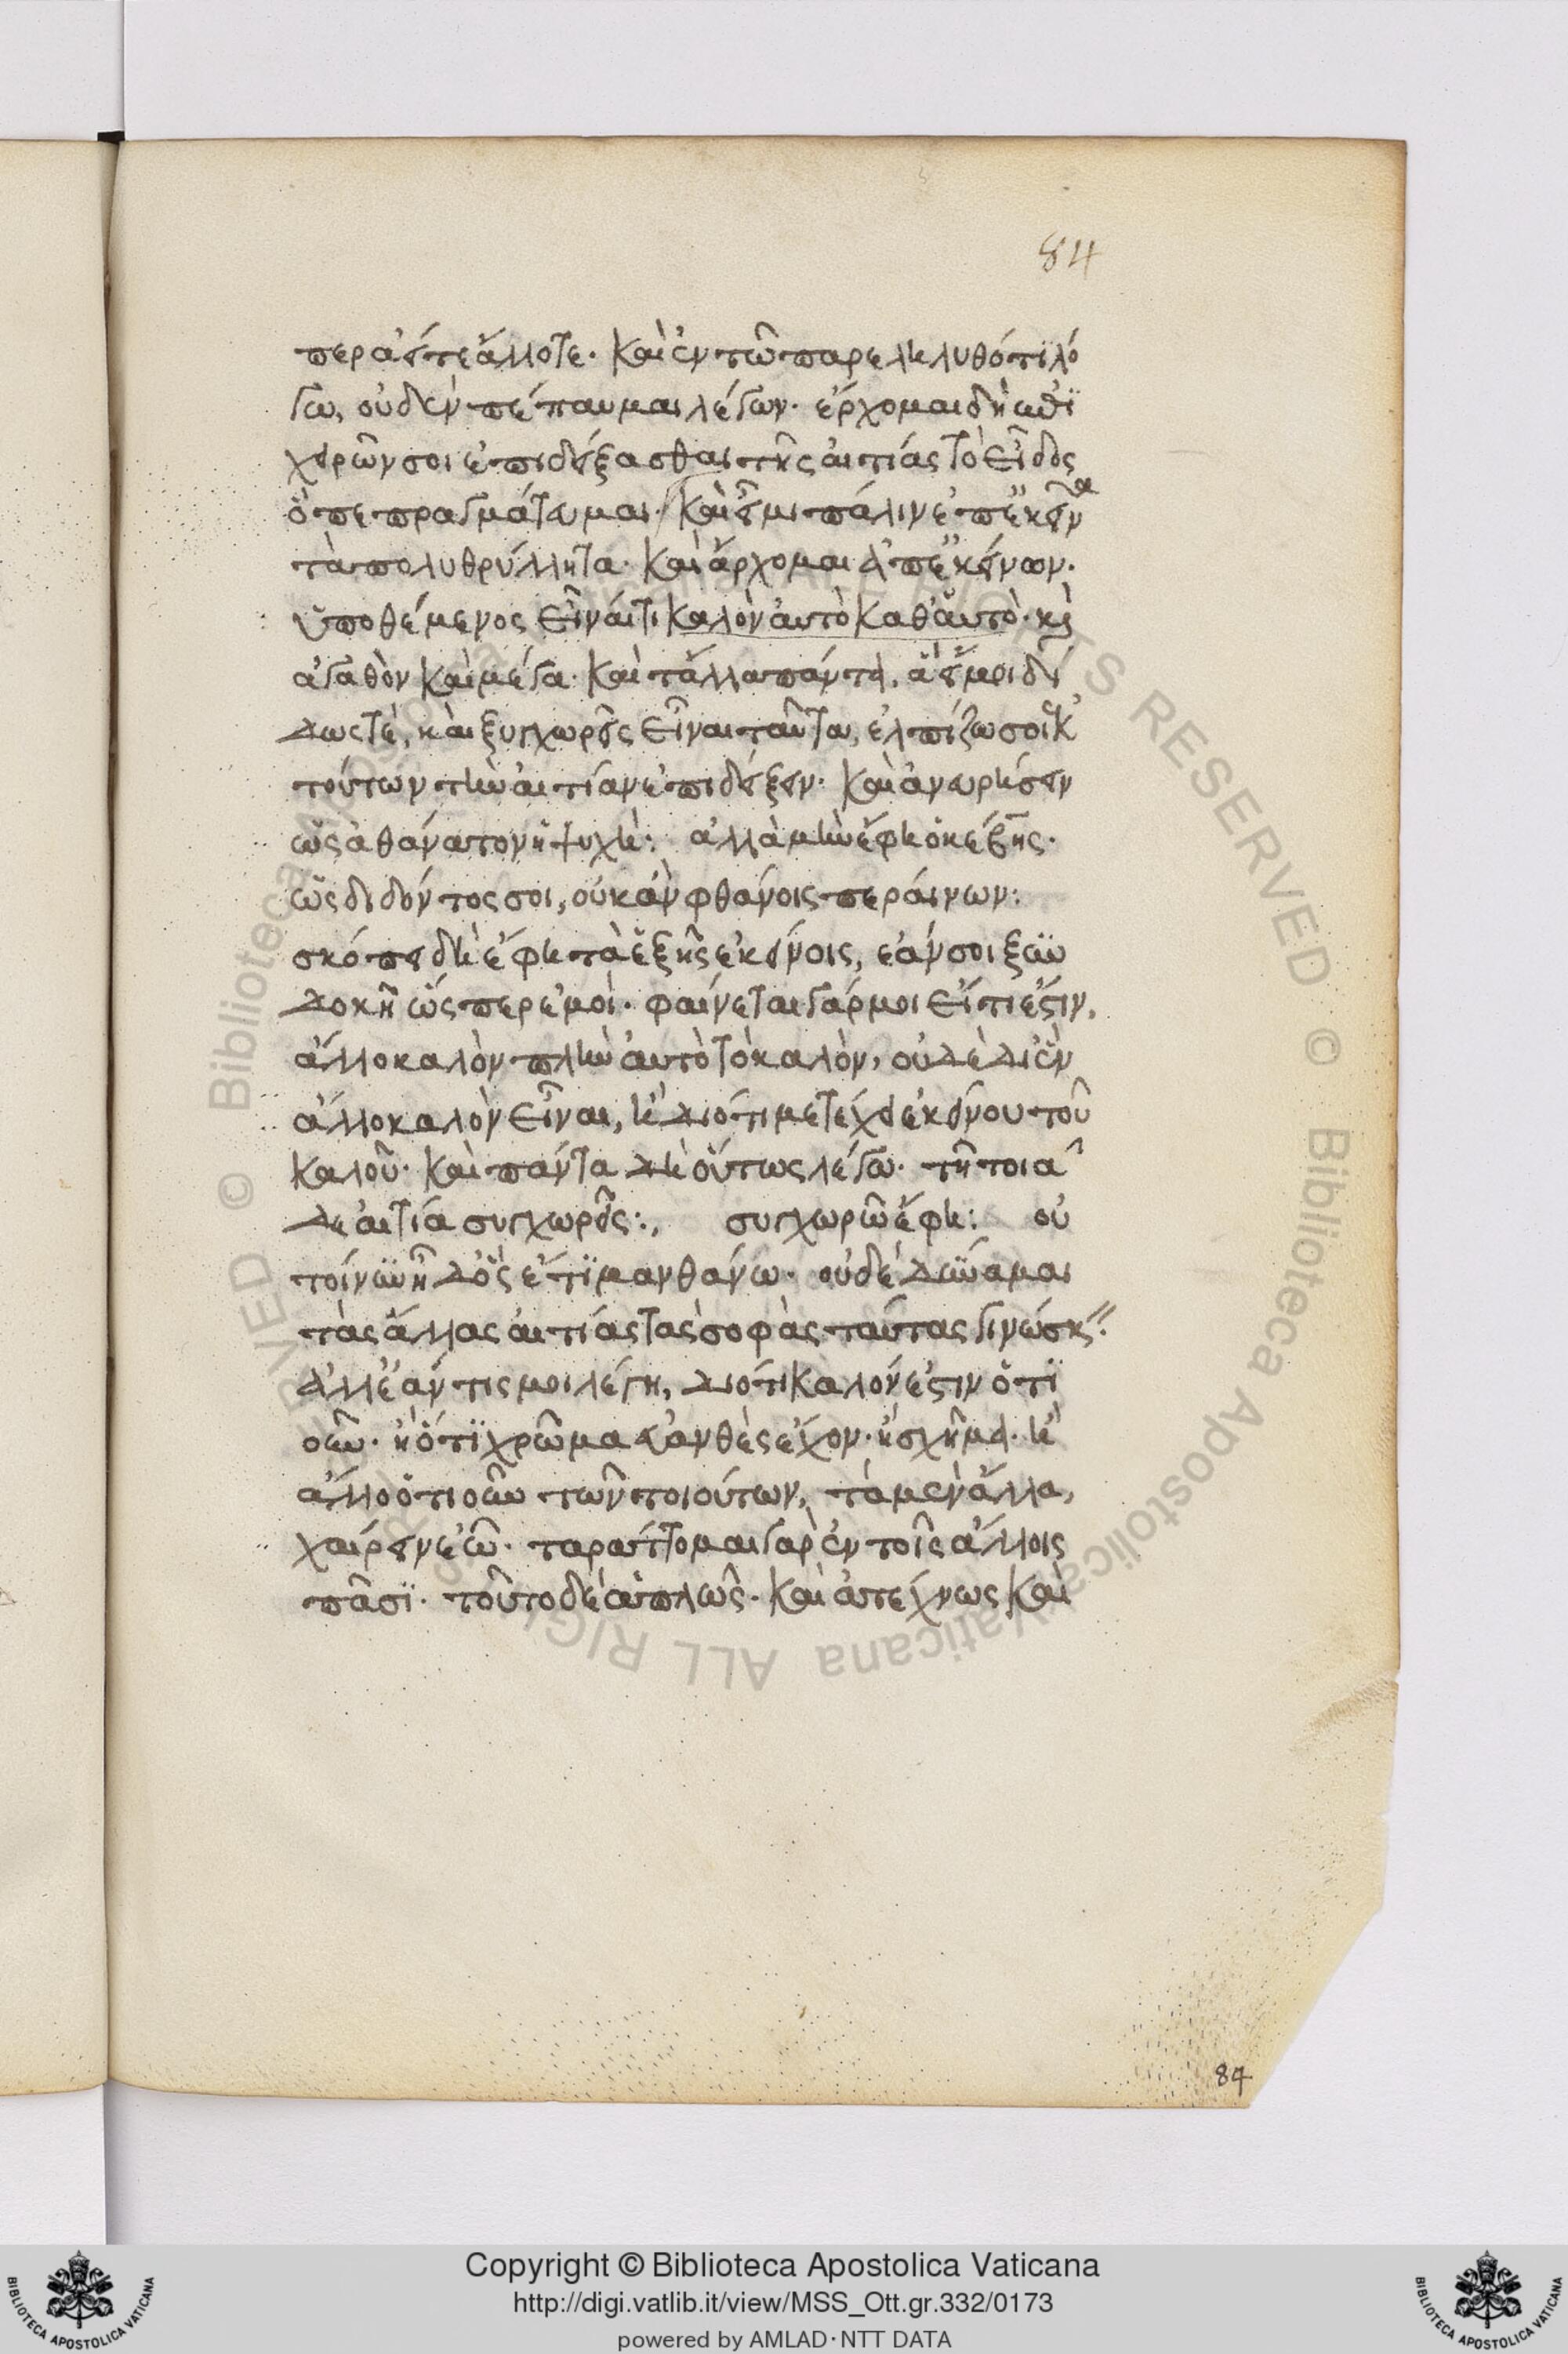 84
περ ἀεί τε ἄλλοτε· καὶ ἐν τῶ παρεληλυθότϊ λό
γω, οὐδὲν πέπαυμαι λέγων· ἔρχομαι δὴ ἐπϊ
χειρῶν σοι ἐπιδείξασθαι τῆς αἰτίας τὸ εἶδος
ὃ πεπραγμάτευμαι· καὶ εἶμι πάλιν ἐπ' ἐκεῖνα
τὰ πολυθρύλλητα· καὶ ἄρχομαι ἀπ' ἐκείνων·
ὑποθέμενος εἶναί τι καλὸν αὐτὸ καθ' αὑτὸ· κὶ
ἀγαθὸν καὶ μέγα· καὶ τἄλλα πάντα, ἃ εἴ μοι δί
δως τὲ, καὶ ξυγχωρεῖς εἶναι ταῦτα, ἐλπίζω σοι ἐκ
τούτων τὴν αἰτίαν ἐπιδείξειν· καὶ ἀνευρήσειν
ὡς ἀθάνατον ἡ ψυχή: ἀλλὰ μὴν ἔφη ὁ κέβης·
ὡς διδόντος σοι, οὐκ ἂν φθάνοις περαίνων:
σκόπει δὴ ἔφη τὰ ἑξῆς ἐκείνοις, ἐάν σοι ξυν
δοκῆ ὥσπερ ἐμοί· φαίνεται γάρ μοι εἴ τι ἐστιν,
ἄλλο καλὸν πλὴν αὐτὸ τὸ καλὸν, οὐδὲ δι' ἓν
ἄλλο καλὸν εἶναι, ἢ διότι μετέχει ἐκείνου τοῦ
καλοῦ· καὶ πάντα δὴ οὕτως λέγω· τῆ τοιᾶ
δε αἰτία συγχωρεῖς:, συγχωρῶ ἔφη: οὐ
τοίνυν ἦ δ' ὃς ἔτϊ μανθάνω· οὐδὲ δύναμαι
τὰς ἄλλας αἰτίας τὰς σοφὰς ταύτας γινώσκειν·
ἀλλ' ἐάν τις μοι λέγη, διότι καλόν ἐστιν ὁτϊ
οῦν· ἢ ὅτϊ χρῶμα εὐανθὲς ἔχον· ἢ σχῆμα· ἢ
ἄλλο ὁτιοῦν τῶν τοιούτων, τὰ μὲν ἄλλα,
χαίρειν ἐῶ· ταράττομαι γὰρ ἐν τοῖς ἄλλοις
πᾶσϊ· τοῦτο δὲ ἁπλῶς· καὶ ἀτέχνως καὶ
84
Copyright © Biblioteca Apostolica Vaticana
http://digi.vatlib.it/view/MSS_Ott.gr.332/0173
powered by AMLAD·NTT DATA